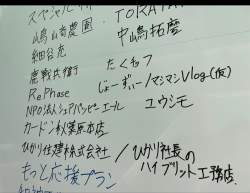 スペシャル
TORATA
嶋嵜農園
中嶋拓磨
細谷亮
鹿戦兵衛
たくねつ
RePhase
じょーずぃー/マシマシVlog(仮)
NPO法人シェアハッピーエール
ユウシモ
カードン秋葉原本店
ひかり住建株式会社/ひかり社長の
ハイブリット工務店
もっと応援プラン